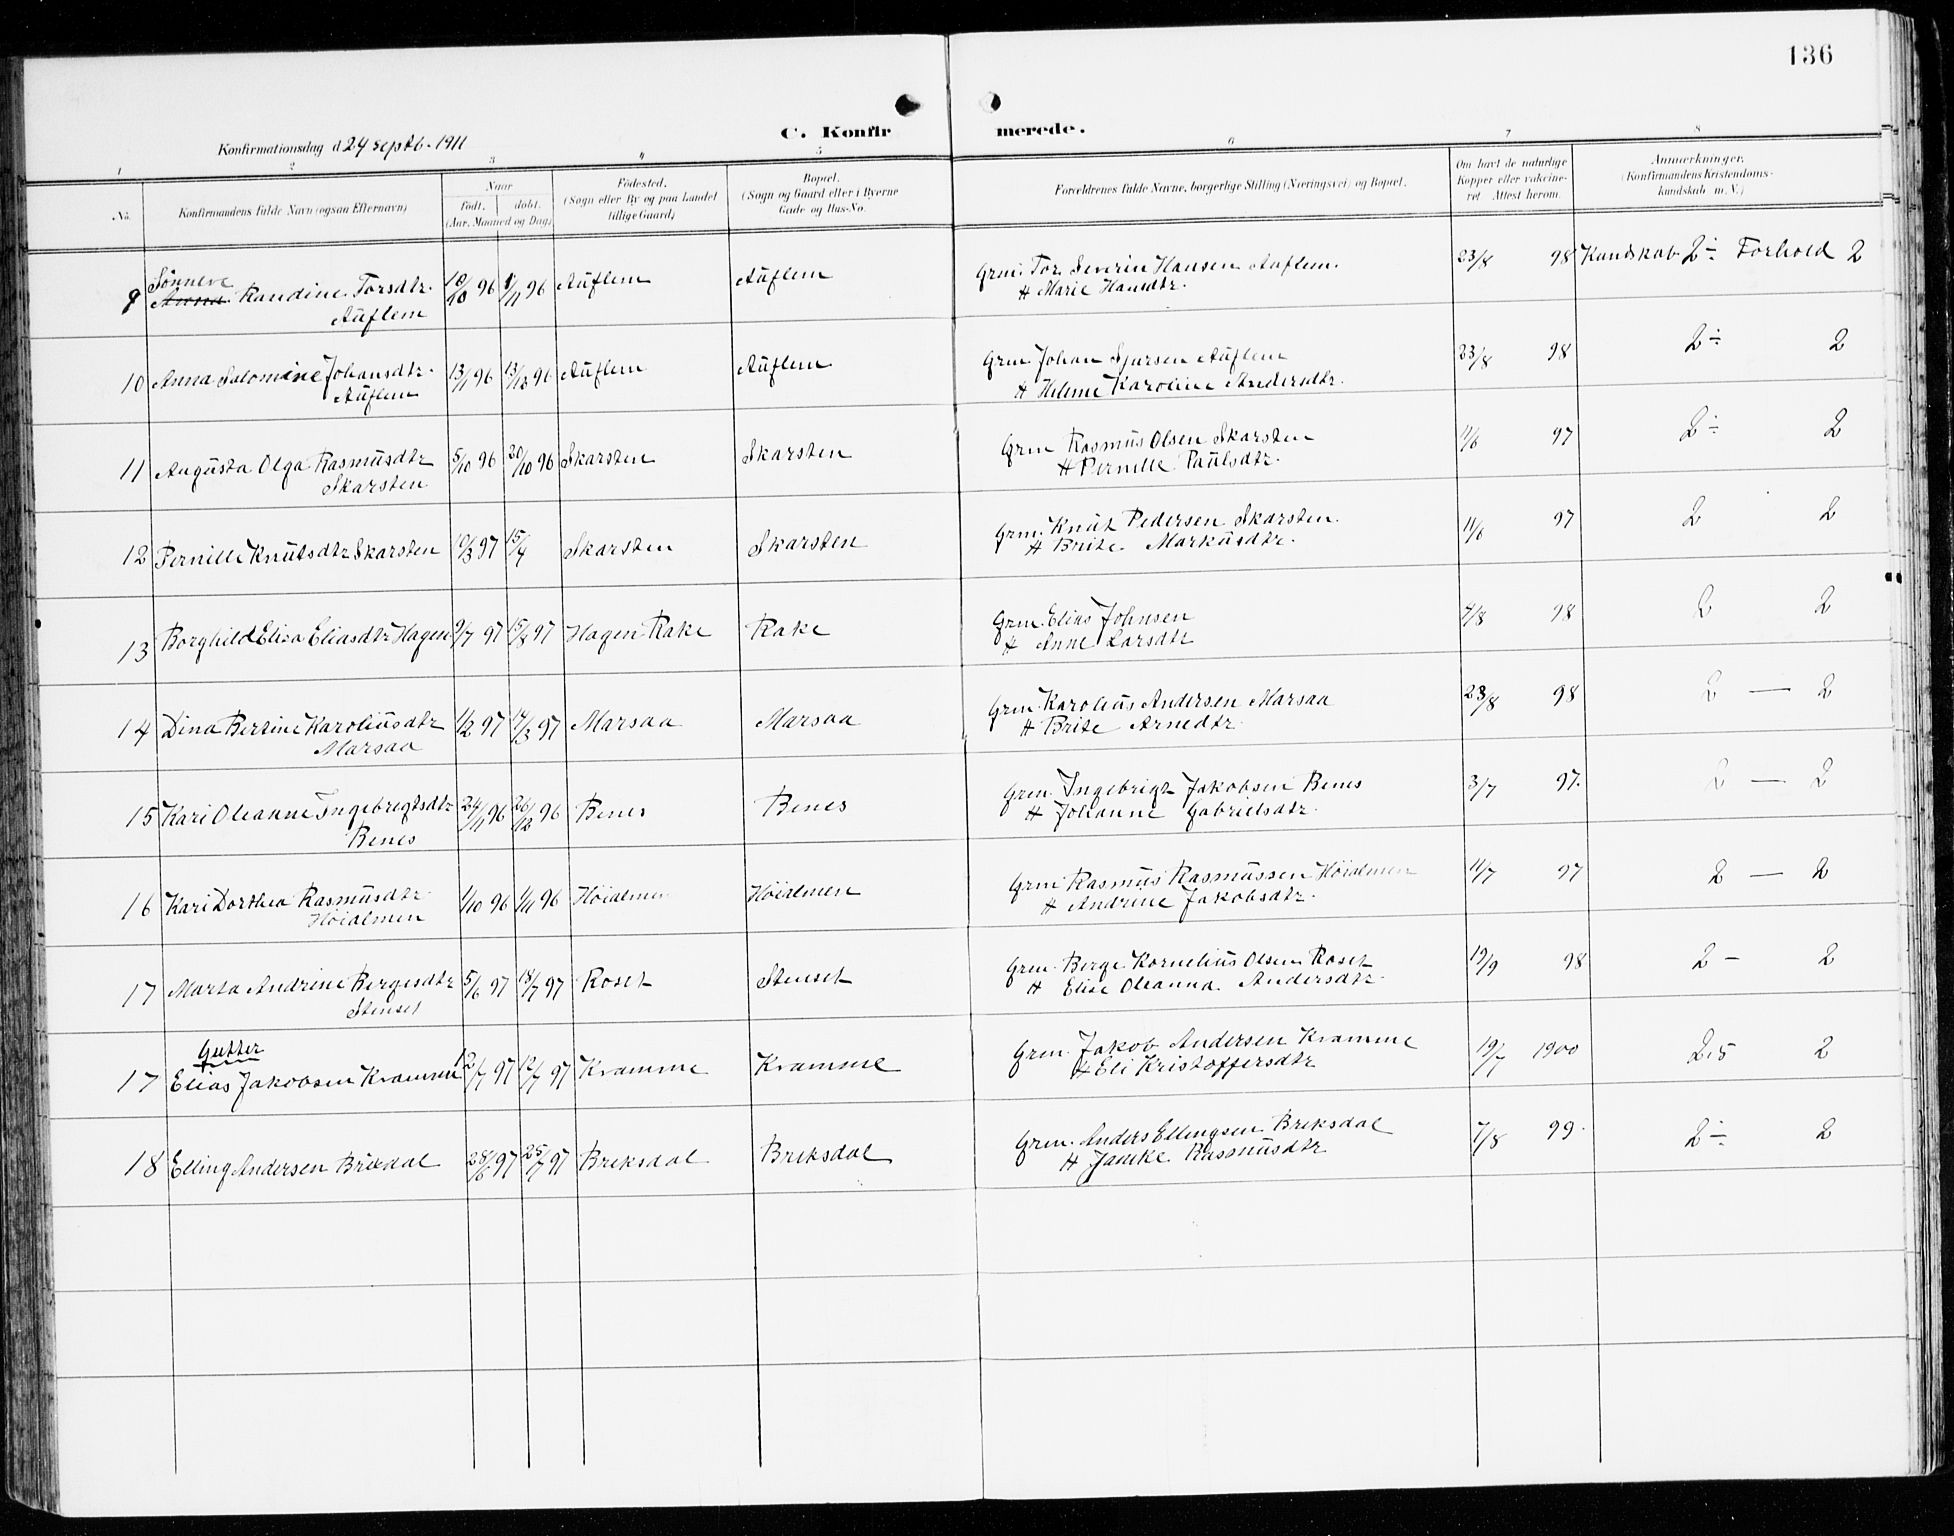 136
C. Konfirmerede.
Konfirmationsdag d. 24 septb. 1911
1 2 3 4 5 6 7 8
No. Konfirmandens fulde Navn (ogsaa Efternavn) Naar født. døbt. (Aar, Maaned og Dag) Fødested. (Sogn eller By og paa Landet tillige Gaard) Bopæl. (Sogn og Gaard eller i Byerne Gade og Hus-No. Forældrenes fulde Navne, borgerlige Stilling (Næringsvei) og Bopæl. Om havt de naturlige Kopper eller vakcineret. Attest herom. Anmærkninger. (Konfirmandens Kristendomskundskab m. V.)
9 Sønneve Randine Torsdtr. Auflem 10/10 96 1/11 96 Auflem Auflem Grm. Tor Severin Hansen Auflem. H Marie Hansdtr. 23/8 98 Kundskab 2 ÷ Forhold 2
10 Anna Salomine Johansdtr. Auflem 13/11 96 13/12 96 Auflem Auflem Grm. Johan Sjursen Auflem H Helene Karoline Andersdtr. 23/8 98 2 ÷ 2
11 Augusta Olga Rasmusdtr Skarsten 5/10 96 20/10 96 Skarsten Skarsten Grm Rasmus Olsen Skarsten H Pernille Paulsdtr. 11/6 97 2 ÷ 2
12 Pernille Knutsdtr Skarsten 10/3 97 15/4 Skarsten Skarsten Grm. Knut Pedersen Skarsten. H Brite Markusdtr. 11/6 97 2 2
13 Borghild Elisa Eliasdtr Hagen 9/7 97 15/8 97 Hagen Rake Rake Grm. Elias Johnsen H Anne Larsdtr 4/8 98 2 2
14 Dina Bertine Karoliusdtr Marsaa 1/2 97 17/3 97 Marsaa Marsaa Grm. Karolius Andersen Marsaa H Brite Arnedtr. 23/8 98 2 — 2
15 Kari Oleanne Ingebrigtsdtr Benes 24/11 96 26/12 96 Benes Benes Grm. Ingebrigt Jakobsen Benes H Johanne Gabrielsdtr. 3/7 97. 2 — 2
16 Kari Dorthea Rasmusdtr Høialmen 1/10 96 1/11 96 Høialmen Høialmen Grm Rasmus Rasmussen Høialmen H Andrine Jakobsdtr. 11/7 97 2 — 2
17 Marta Andrine Bergesdtr Stenset 5/6 97 18/7 97 Roset Stenset Grm. Berge Kornelius Olsen Roset H Elise Oleanna Andersdtr 19/9 98 2 — 2
Gutter
17 Elias Jakobsen Kramme 12/7 97 Kramme Kramme Grm. Jakob Andersen Kramme H Eli Kristoffersdtr 19/7 1900 2.5 2
18 Elling Andersen Brixdal 28/6 97 25/7 97 Breksdal Breksdal Grm. Anders Ellingsen Breksdal H Jamke Rasmusdtr 7/8 99. 2 ÷ 2